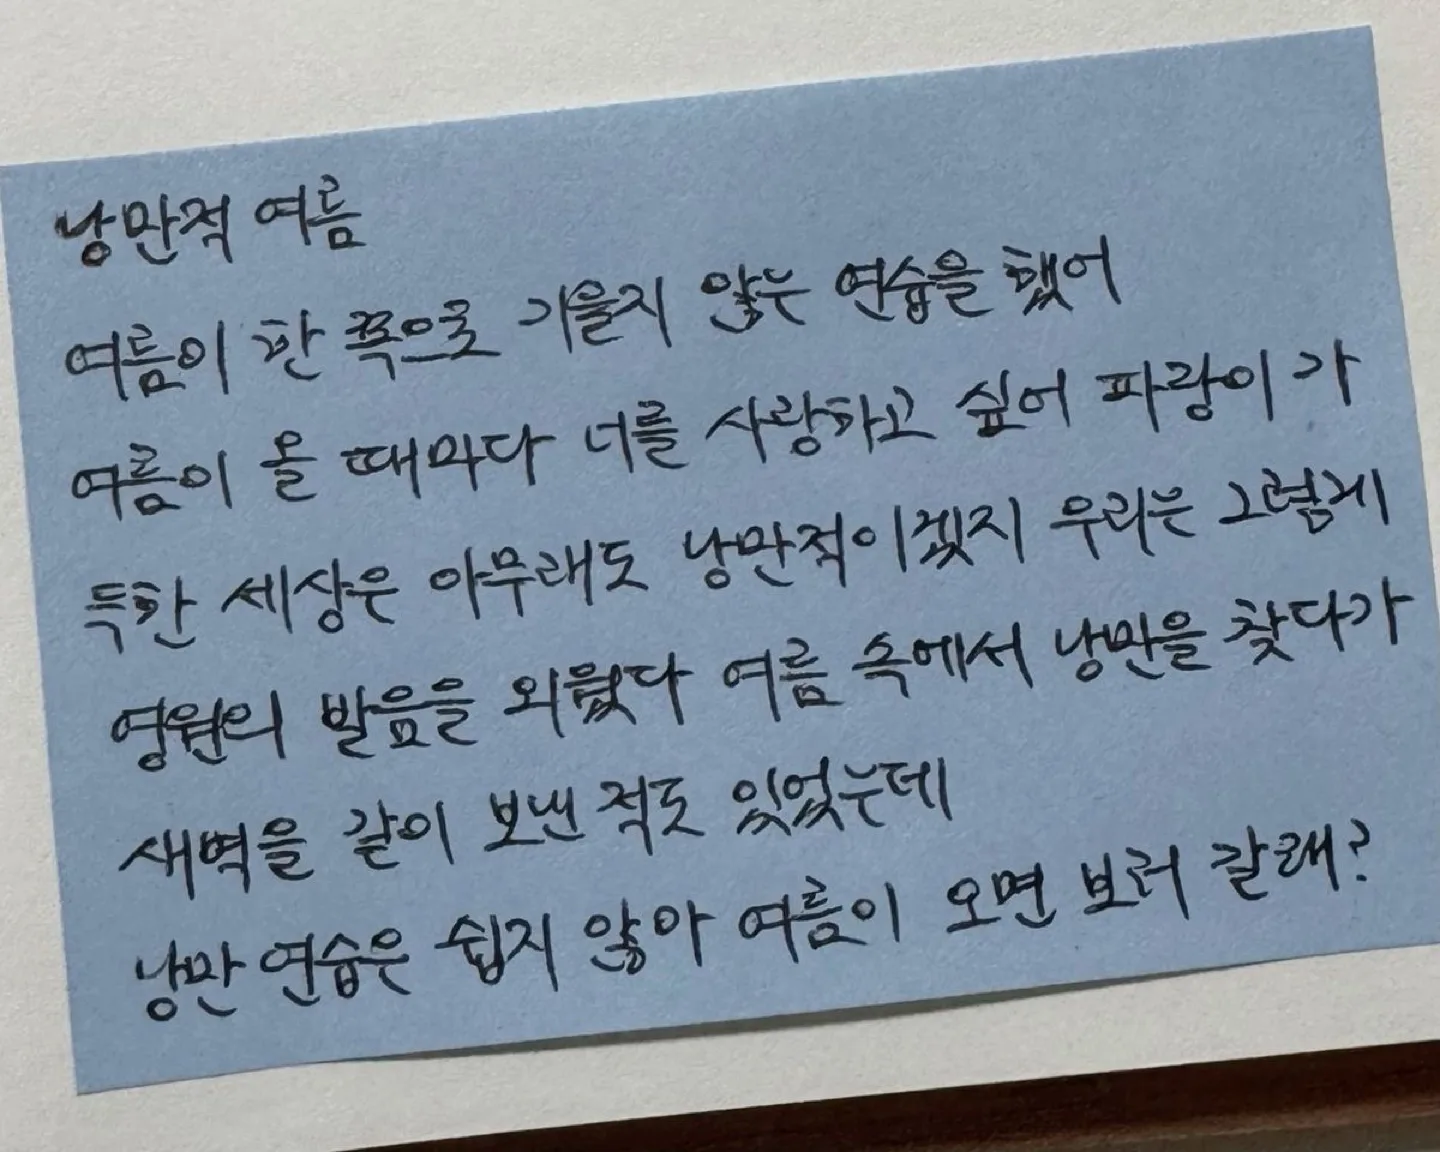 낭만적 여름
여름이 한 쪽으로 기울지 않는 연습을 했어
여름이 올 때마다 너를 사랑하고 싶어 파랑이 가
득한 세상은 아무래도 낭만적이겠지 우리는 그렇게
영원의 발음을 외웠다 여름 속에서 낭만을 찾다가
새벽을 같이 보낸 적도 있었는데
낭만 연습은 쉽지 않아 여름이 오면 보러 갈래?